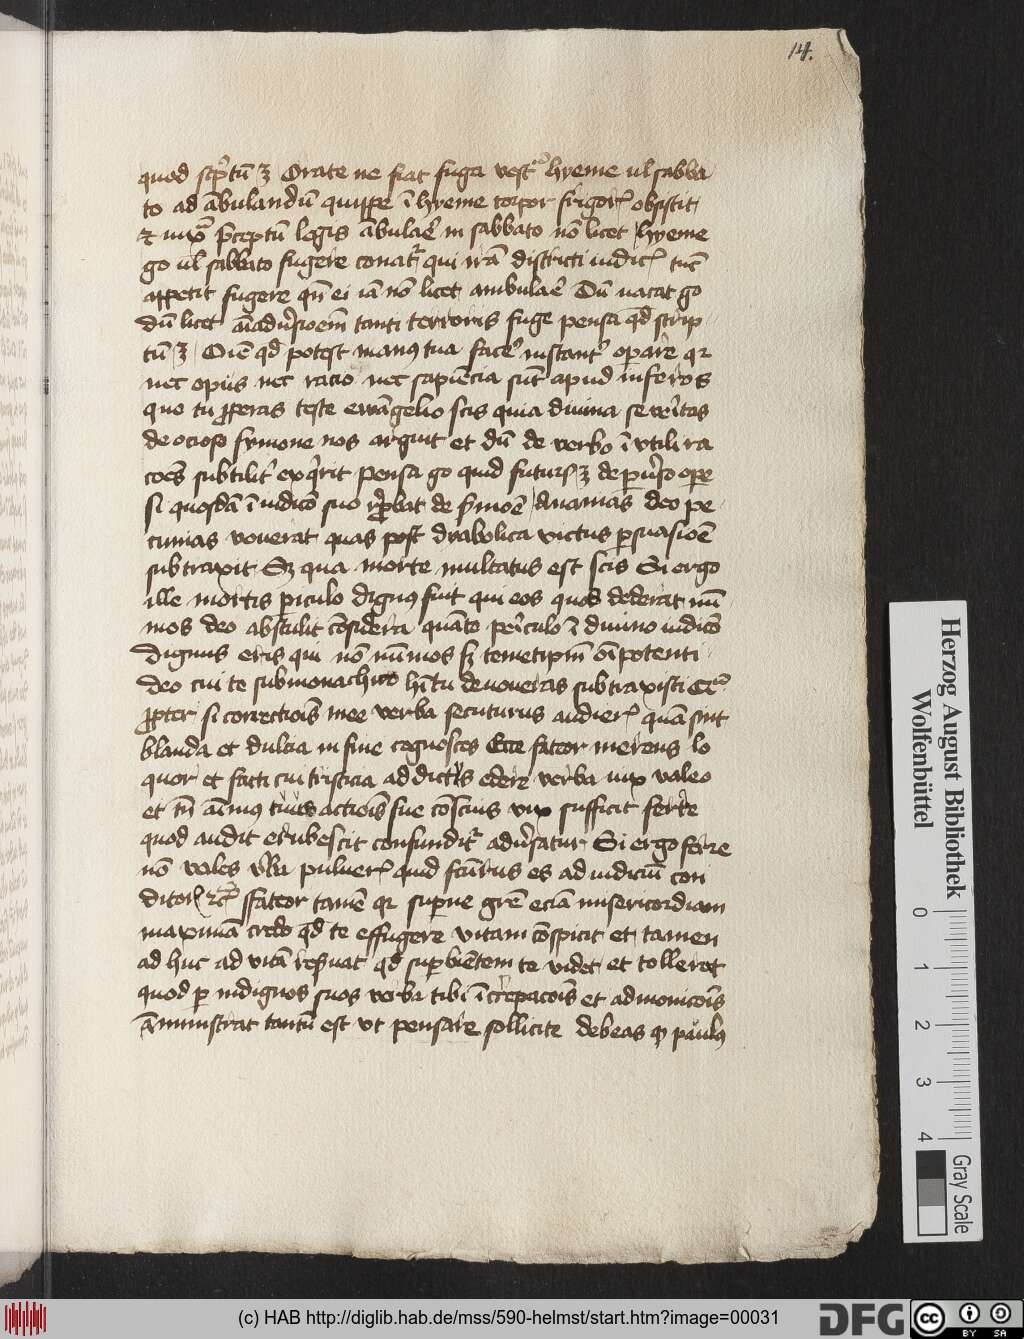 14.
quod scptū ꝫ Orate ne fiat fuga vestᵃ hyeme ul sabba
to ad ābulandū quippe ī hyeme torpor frigorꝭ obsistit
et iuxᵃ p̄ceptū legis ābulaē in sabbato nō licet hyeme
go ul sabbato fugere conatᵉ qui irā districti iudicꝭ tūc
appetit fugere qn̄ ei iā nō licet ambulaē Dū uacat go
dū licet aīaduʼsioem̄ tanti terroris fuge pensa qd̄ scrip
tū ꝫ Oīe qd̄ potest manꝰ tua facē instantʼ operare qꝛ
nec opus nec racio nec sapiēcia sūt apud inferos
quo tu ꝓperas teste ewāgelio scis quia diuina seueritas
de ocioso sermone nos arguit et dū de verbo īutili ra
coēs subtilitʼ exqʼrit Pensa go quid futurꝰ ꝫ de puʼso oꝑe
si quosdā ī iudicō suo rꝓbat de sʼmoē Ananias deo pe
cunias vouerat quas post dyabolica victus ꝑsuasioē
subtraxit Sꝫ qua morte multatus est scis Si ergo
ille mortis piculo dignꝰ fuit qui eos quos dederat nū
mos deo abstulit cōsidera quāto pericʼulo ī diuino iudicō
dignus eris qui nō nūmos sꝫ temetipm̄ oīpotenti
deo cui te sub monachico hītu deuoueras subtraxisti Qᵃ
ꝓpter si correctiois mee verba secuturus audierꝭ quā sint
blanda et dulcia in fine cognosces Ecce fateor merens lo
quor et facti cui tristicia addictus edere verba uix valeo
et tn̄ aīmus tuus actiōis sue cōscius vix sufficit ferre
quod audit erubescit confunditʼ aduʼsatur Si ergo ferre
nō vales vʼba puluerꝭ quid fcūrus es ad iudiciū con
ditorꝭ rcʼ ffateor tamē qꝛ superne grē eciā misericordiam
maximā credo qd̄ te effugere vitam cōspicit et tamen
ad huc ad vitā reseruat qd̄ suꝑbientem te videt et tollerat
quod ꝑ indignos suos verba tibi īcrepacōis et admonicōis
āministrat tantū est vt pensare sollicite debeas qͦ paulꝰ
Herzog August Bibliothek
Wolfenbüttel
0 1 2 3 4
Gray Scale
(c) HAB http://diglib.hab.de/mss/590-helmst/start.htm?image=00031
DFG
cc BY SA